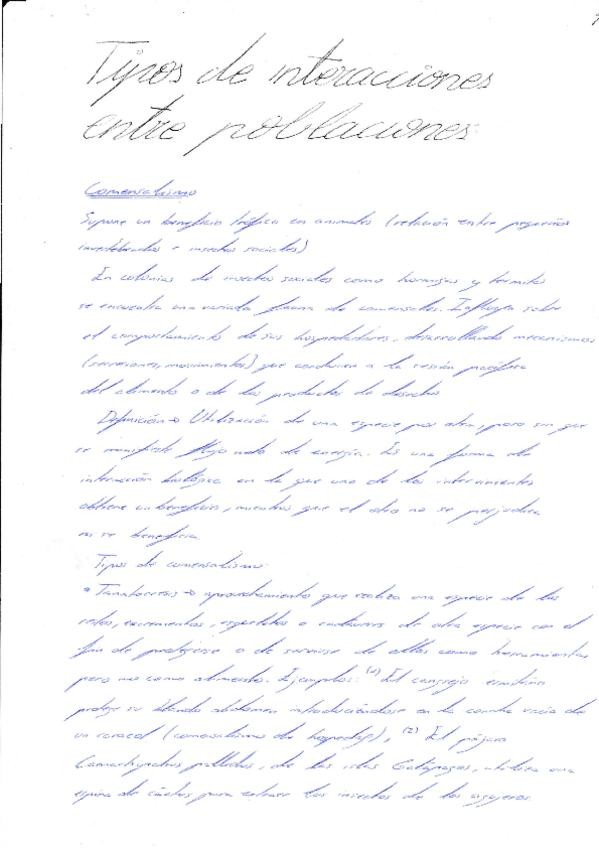 Tipos de interacciones
entre poblaciones
Comensalismo
Supone un beneficio trófico en animales (relación entre pequeños
invertebrados e insectos sociales)
En colonias de insectos sociales como hormigas y termitas
se encuentra una variada fauna de comensales. Influyen sobre
el comportamiento de sus hospedadores, desarrollando mecanismos
(secreciones, movimientos) que conducen a la cesión pacífica
del alimento o de los productos de desecho
Definición → Utilización de una especie por otra, pero sin que
se manifieste flujo neto de energía. Es una forma de
interacción biológica en la que uno de los intervinientes
obtiene un beneficio, mientras que el otro no se perjudica
ni se beneficia.
Tipos de comensalismo:
• Tanatocresis → aprovechamiento que realiza una especie de los
restos, excrementos, esqueletos o cadáveres de otra especie con el
fin de protegerse o de servirse de ellos como herramientas
pero no como alimento. Ejemplos: (1) El cangrejo ermitaño
protege su blando abdomen introduciéndose en la concha vacía de
un caracol (comensalismo de), (2) El pájaro
Camarhynchus pallidus, de las islas Galápagos, utiliza una
espina de cactus para extraer los insectos de los agujeros.